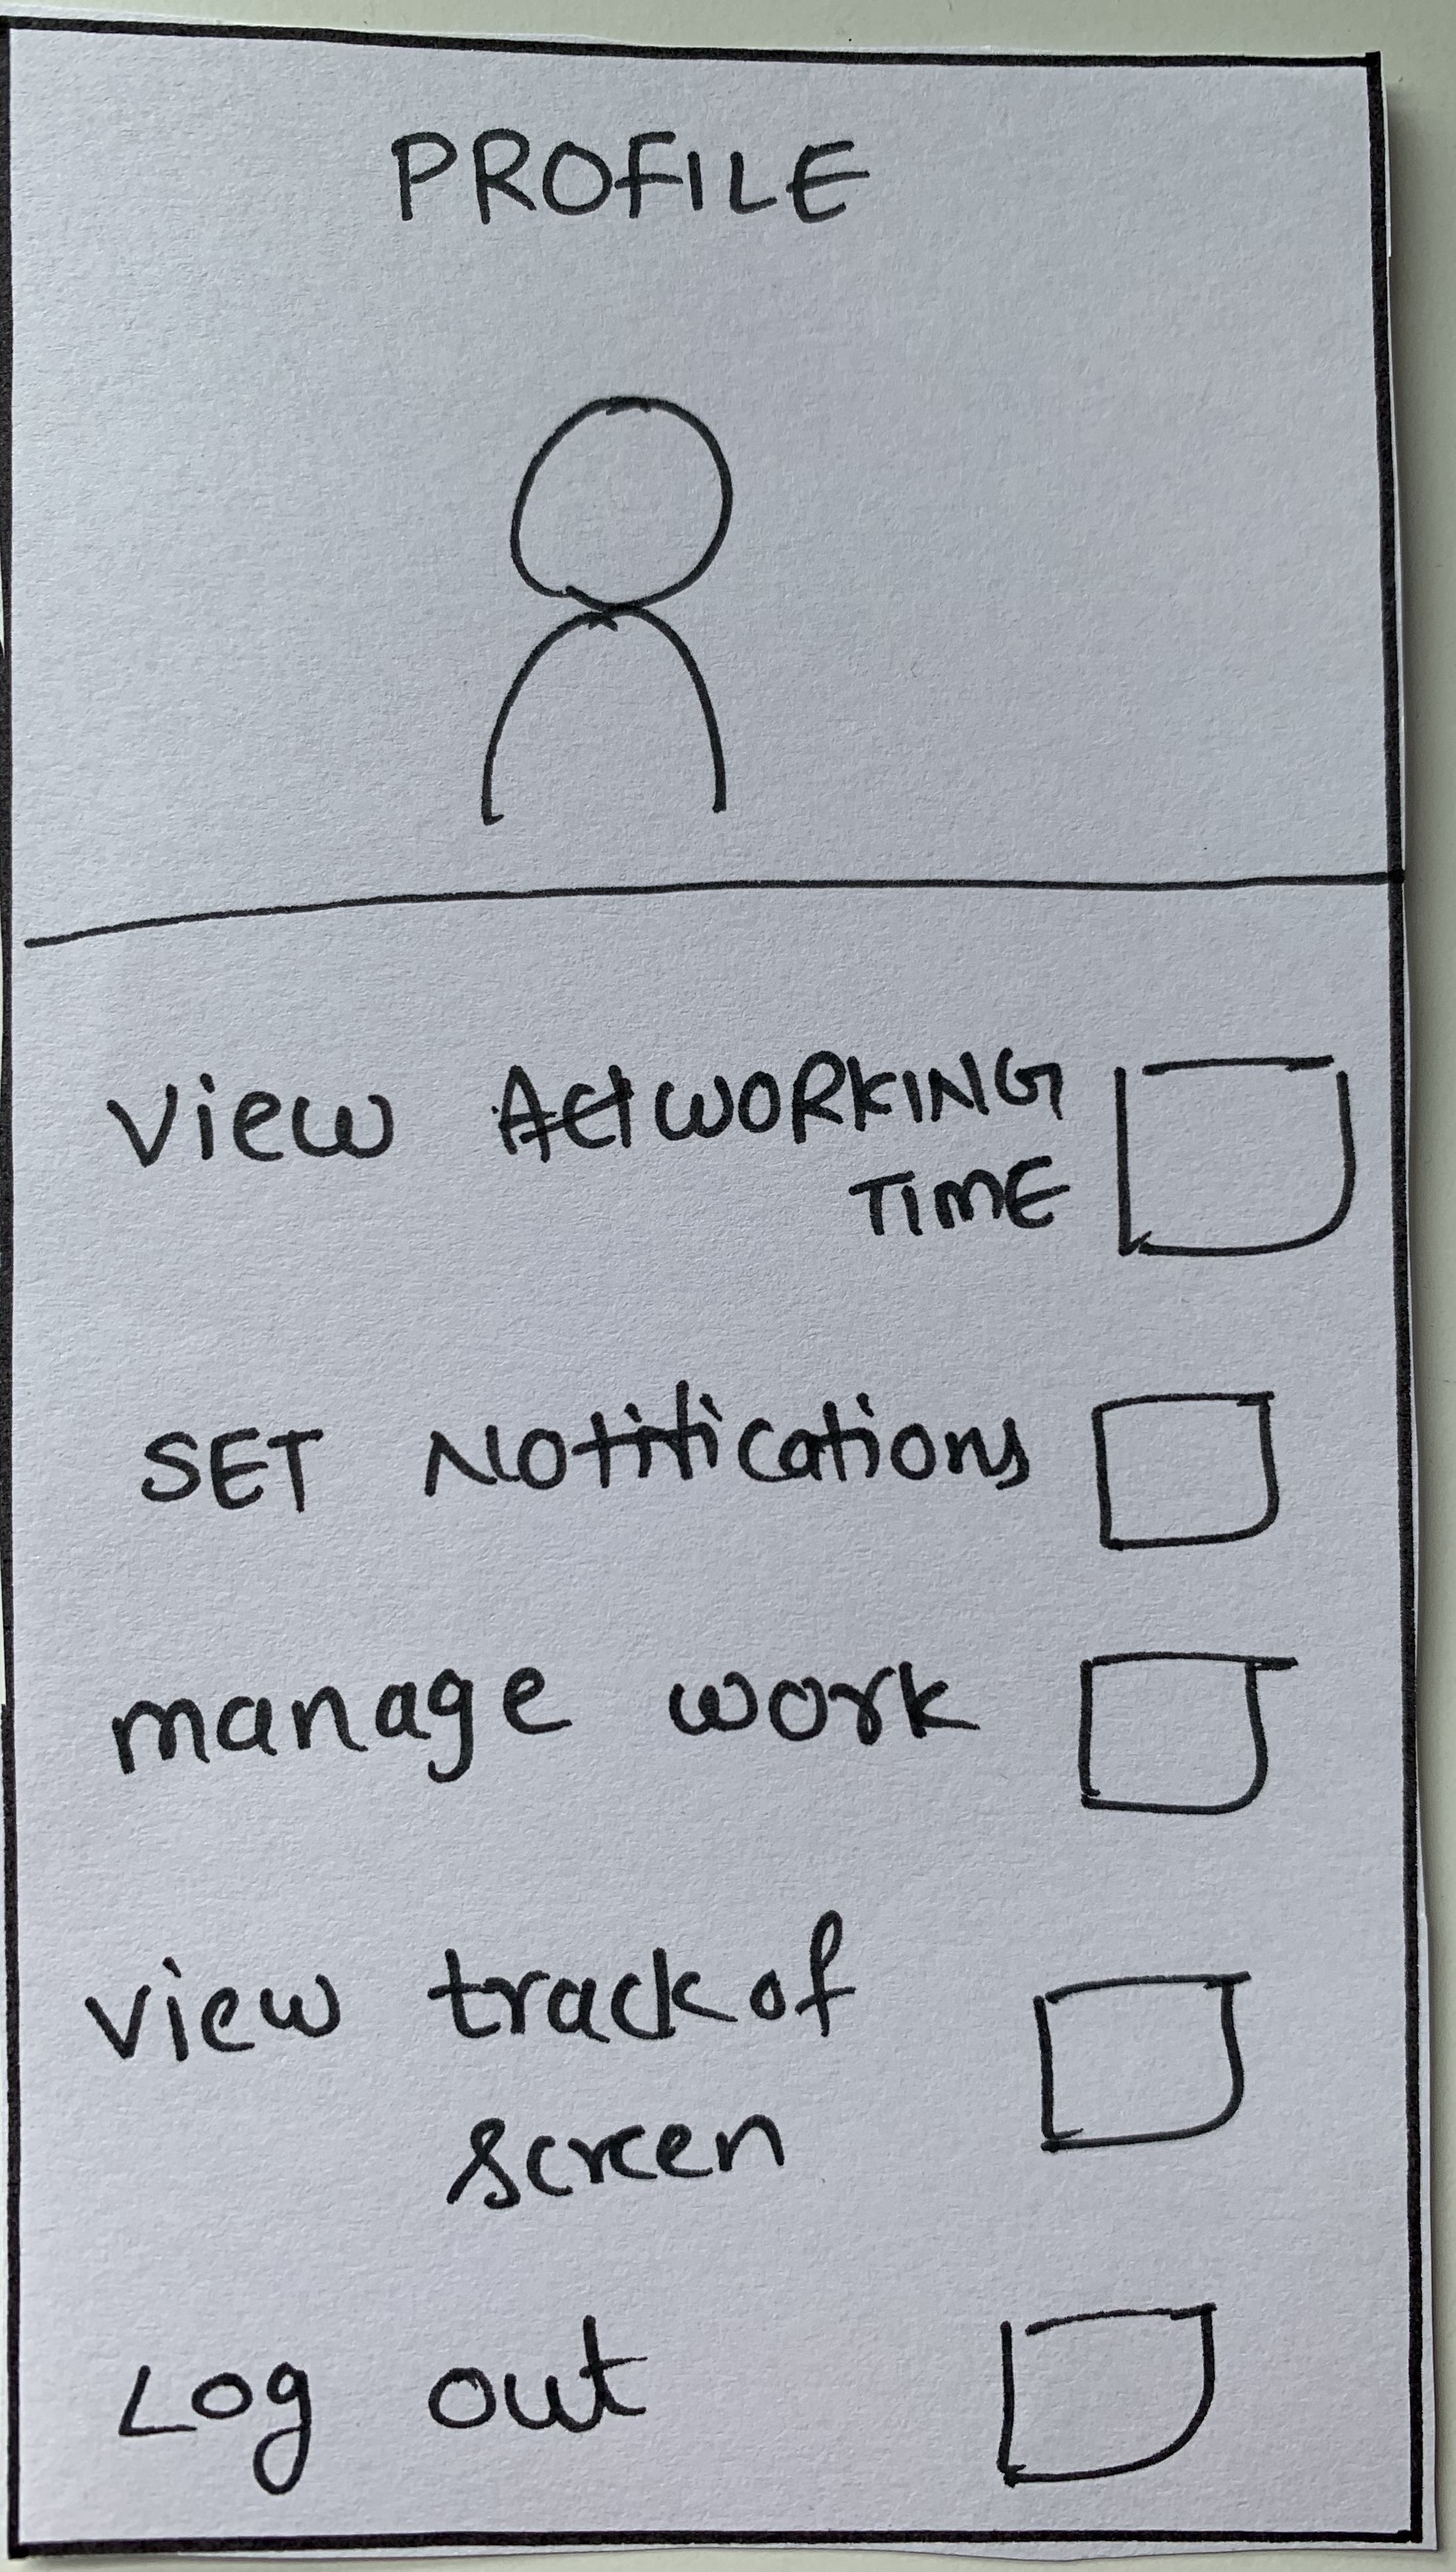 PROFILE
View WORKING
TIME
SET Notifications
manage work
view track of
screen
Log out